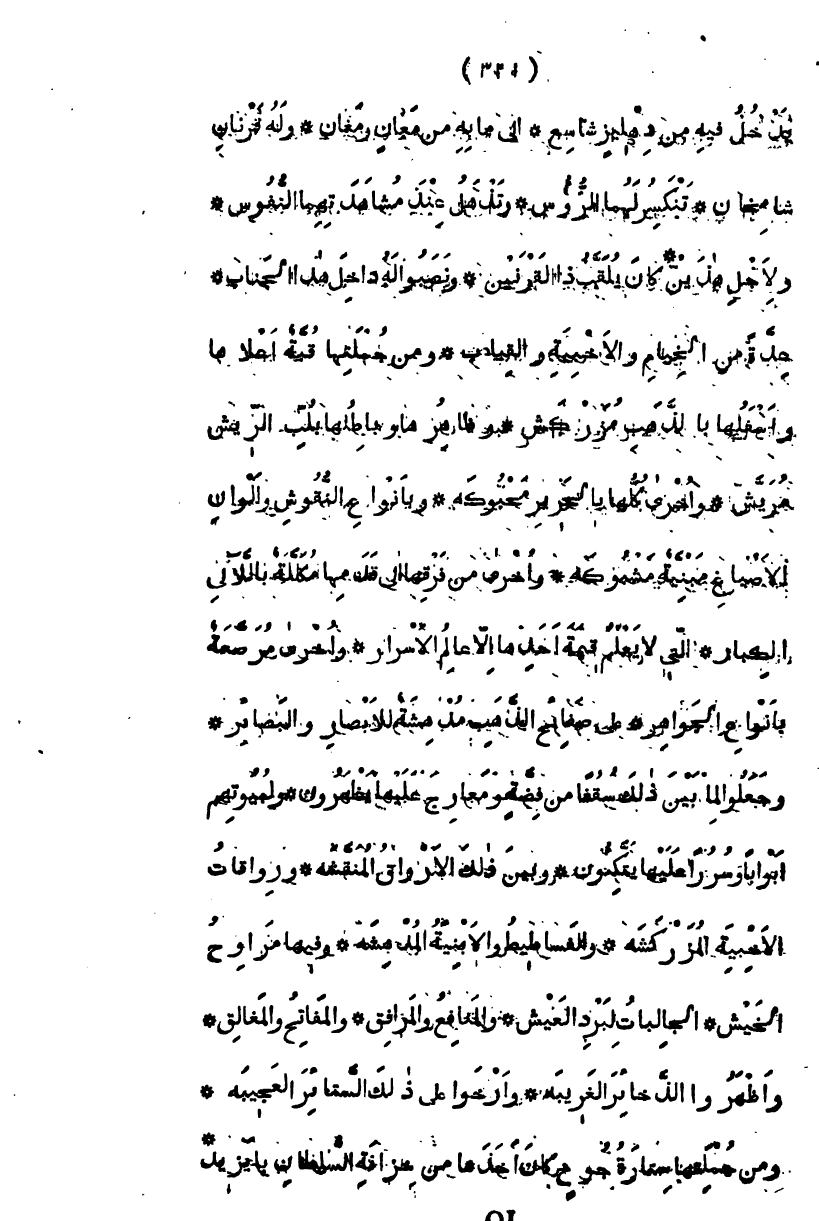 ( ٣٢١ )
يدخل فيه من دهليز شاسع * الى ما به من مغان ومغان * وله قرنان
شامخان * تنكسر لهما الرؤس * وتذهل عند مشاهدتهما النفوس *
ولأجل هذين * كان يلقب ذا القرنين * ونصبوا له داخل هذا الجناب *
عدة من الخيام والأخبية والقباب * ومن جملتها قبة اعلاها
واسفلها بالذهب مزركش * وظاهرها وباطنها بلب الريش
مريش * واخرى كلها بالحرير محبوكه * وبأنواع النقوش والوان
الاصباغ مبنية مشبوكه * واخرى من فرقها الى قدمها مكللة باللآلئ
الكبار * التي لا يعلم قيمة احدها الا عالم الاسرار * واخرى مرصعة
بأنواع الجواهر * على صفائح الذهب مدهشة للابصار والبصائر *
وجعلوا لما بين ذلك سقفا من فضة ومعارج عليها يظهرون * ولبيوتهم
ابوابا وسررا عليها يتكئون * وبين ذلك الاروقة المنقشه * ورواقات
الاخبية المزركشه * والفساطيط والابنية المدهشه * وفيها مراوح
الخيش * الجالبات لبرد العيش * والمنافع والمرافق * والمفاتح والمغالق *
واظهروا الذخائر الغريبه * وارخوا على ذلك الستائر العجيبه *
ومن جملتها ستارة جوخ كان اخذها من خزانة السلطان با يزيد *